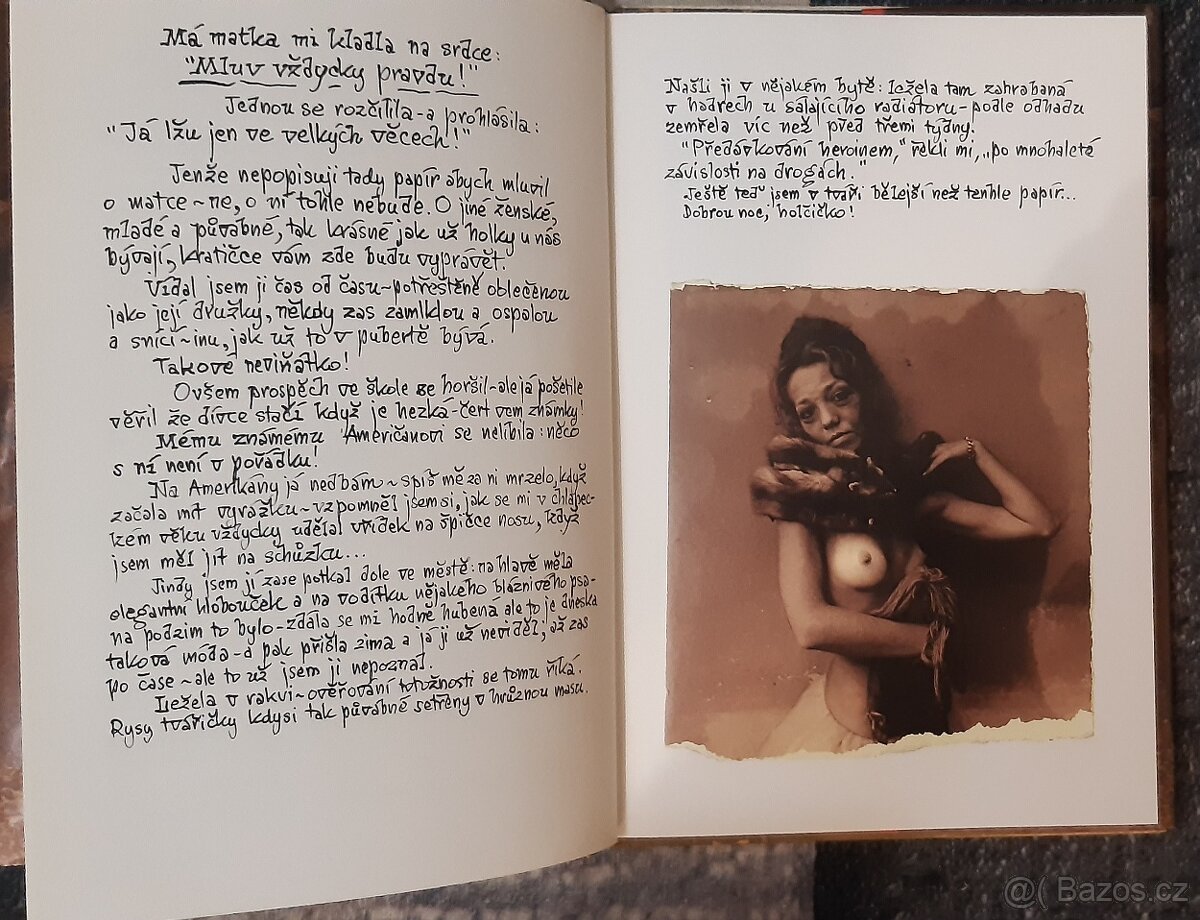 Má matka mi kladla na srdce:
"Mluv vždycky pravdu!"
Jednou se rozčílila-a prohlásila:
"Já lžu jen ve velkých věcech!"
Jenže nepopisuji tady papír abych mluvil
o matce-ne, o ní tohle nebude. O jiné ženské,
mladé a půvabné, tak krásné jak už holky u nás
bývají, kratičce vám zde budu vyprávět.
Vídal jsem ji čas od času-potřeštěně oblečenou
jako její družky, někdy zas zamlklou a ospalou
a snící-inu, jak už to v pubertě bývá.
Takové neviňátko!
Ovšem prospěch ve škole se horšil-ale já pošetile
věřil že dívce stačí když je hezká-čert vem známky!
Mému známému Američanovi se nelíbila: něco
s ní není v pořádku!
Na Amerikány já nedbám-spíš mě za ni mrzelo, když
začala mít vyrážku-vzpomněl jsem si, jak se mi v chlapec-
kém věku vždycky udělal vřídek na špičce nosu, když
jsem měl jít na schůzku...
Jindy jsem ji zase potkal dole ve městě: na hlavě měla
elegantní klobouček a na vodítku nějakého bláznivého psa-
na podzim to bylo-zdála se mi hodně hubená ale to je dneska
taková móda-a pak přišla zima a já ji už neviděl, až zas
po čase-ale to už jsem ji nepoznal.
Ležela v rakvi-ověřování totožnosti se tomu říká.
Rysy tvářičky kdysi tak půvabné setřeny v hrůznou masu.
Našli ji v nějakém bytě: Ležela tam zahrabaná
v hadrech u sálajícího radiátoru-podle odhadu
zemřela víc než před třemi týdny.
"Předávkování heroinem," řekli mi, „po mnohaleté
závislosti na drogách."
Ještě teď jsem v tváři bělejší než tenhle papír...
Dobrou noc, holčičko!
@( Bazos.cz